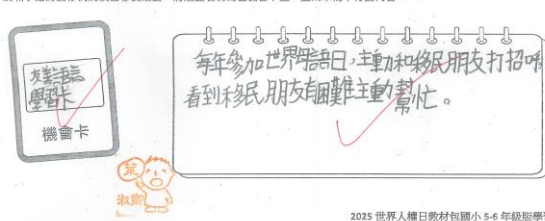 友善語言
學習卡
機會卡
每年參加世界母語日，主動和移民朋友打招呼
看到移民朋友有困難主動幫忙。
葉
淑卿
2025 世界人權日教材包國小 5-6 年級版學